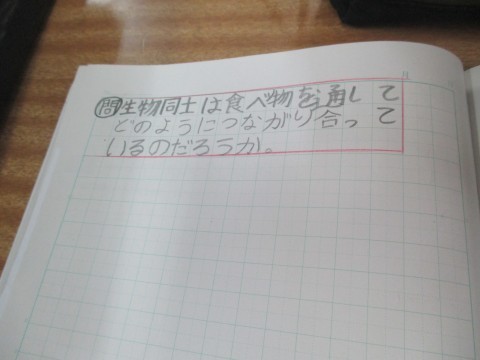 問生物同士は食べ物を通して
どのようにつながり合って
いるのだろうか。